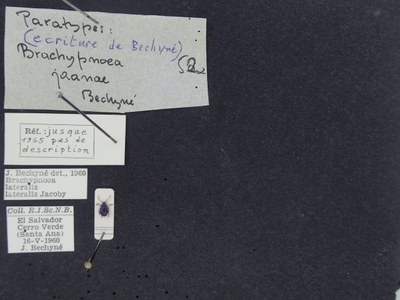 Paratypes:
(ecriture de Bechyné)
Brachypnoea
jaanae
Bechyné
Réf.: jusque
1955 pas de
description
J. Bechyné det., 1960
Brachypnoea
lateralis
lateralis Jacoby
Coll. R.I.Sc.N.B.
El Salvador
Cerro Verde
(Santa Ana)
16-V-1960
J. Bechyné